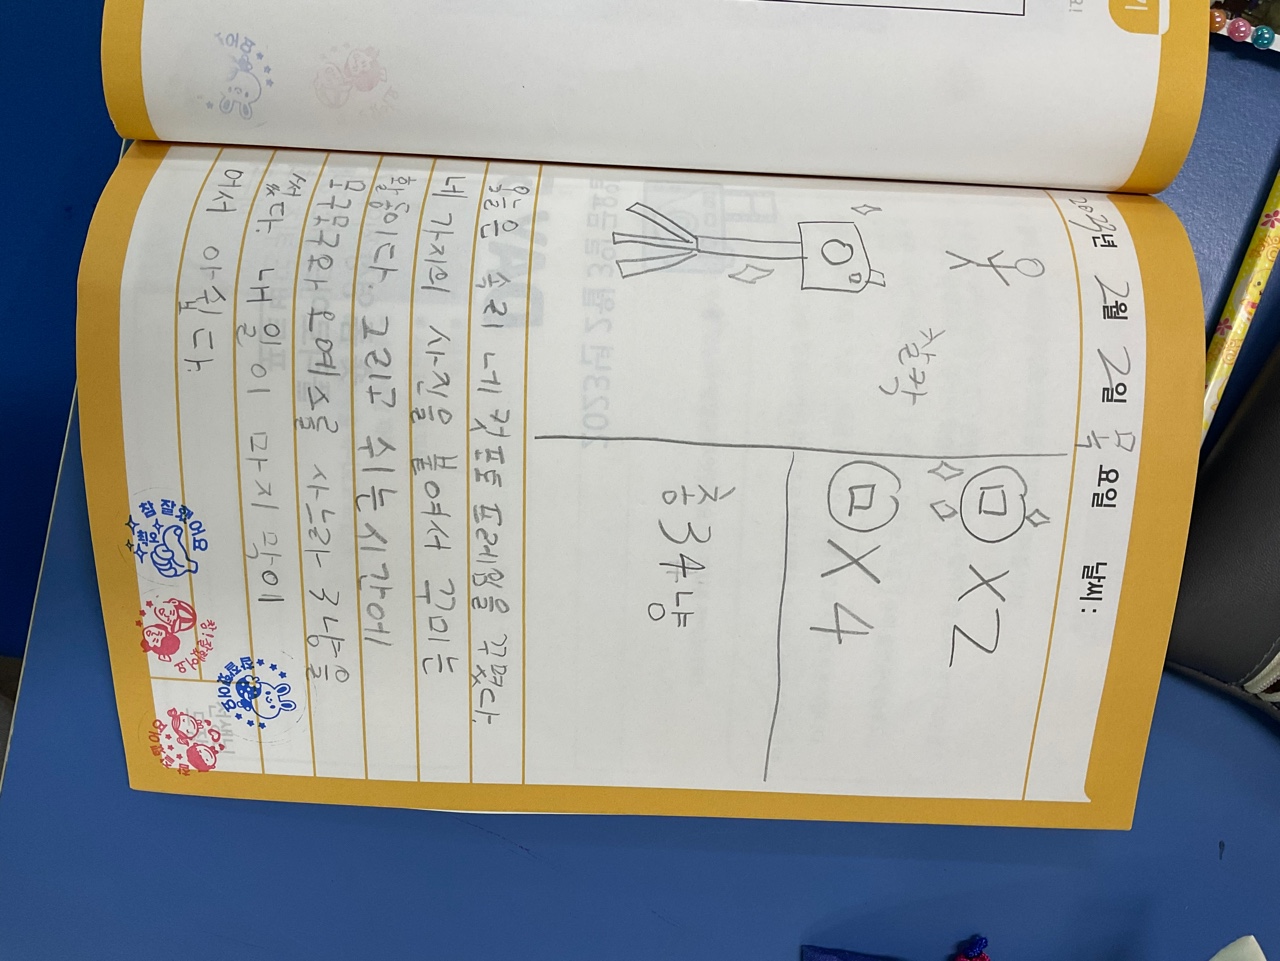 2023년 2월 2일 목요일 날씨:
찰칵
X2
X4
총 34냥
오늘은 속리 네 컷포토 프레임을 꾸몄다.
네 가지의 사진을 붙여서 꾸미는
활동이다. 그리고 쉬는시간에
모구모구와 오예스를 사느라 3냥을
썼다. 내일이 마지막이
어서 아쉽다.
참 잘했어요
참 잘했어요 최고
참! 잘했어요
참 잘했어요